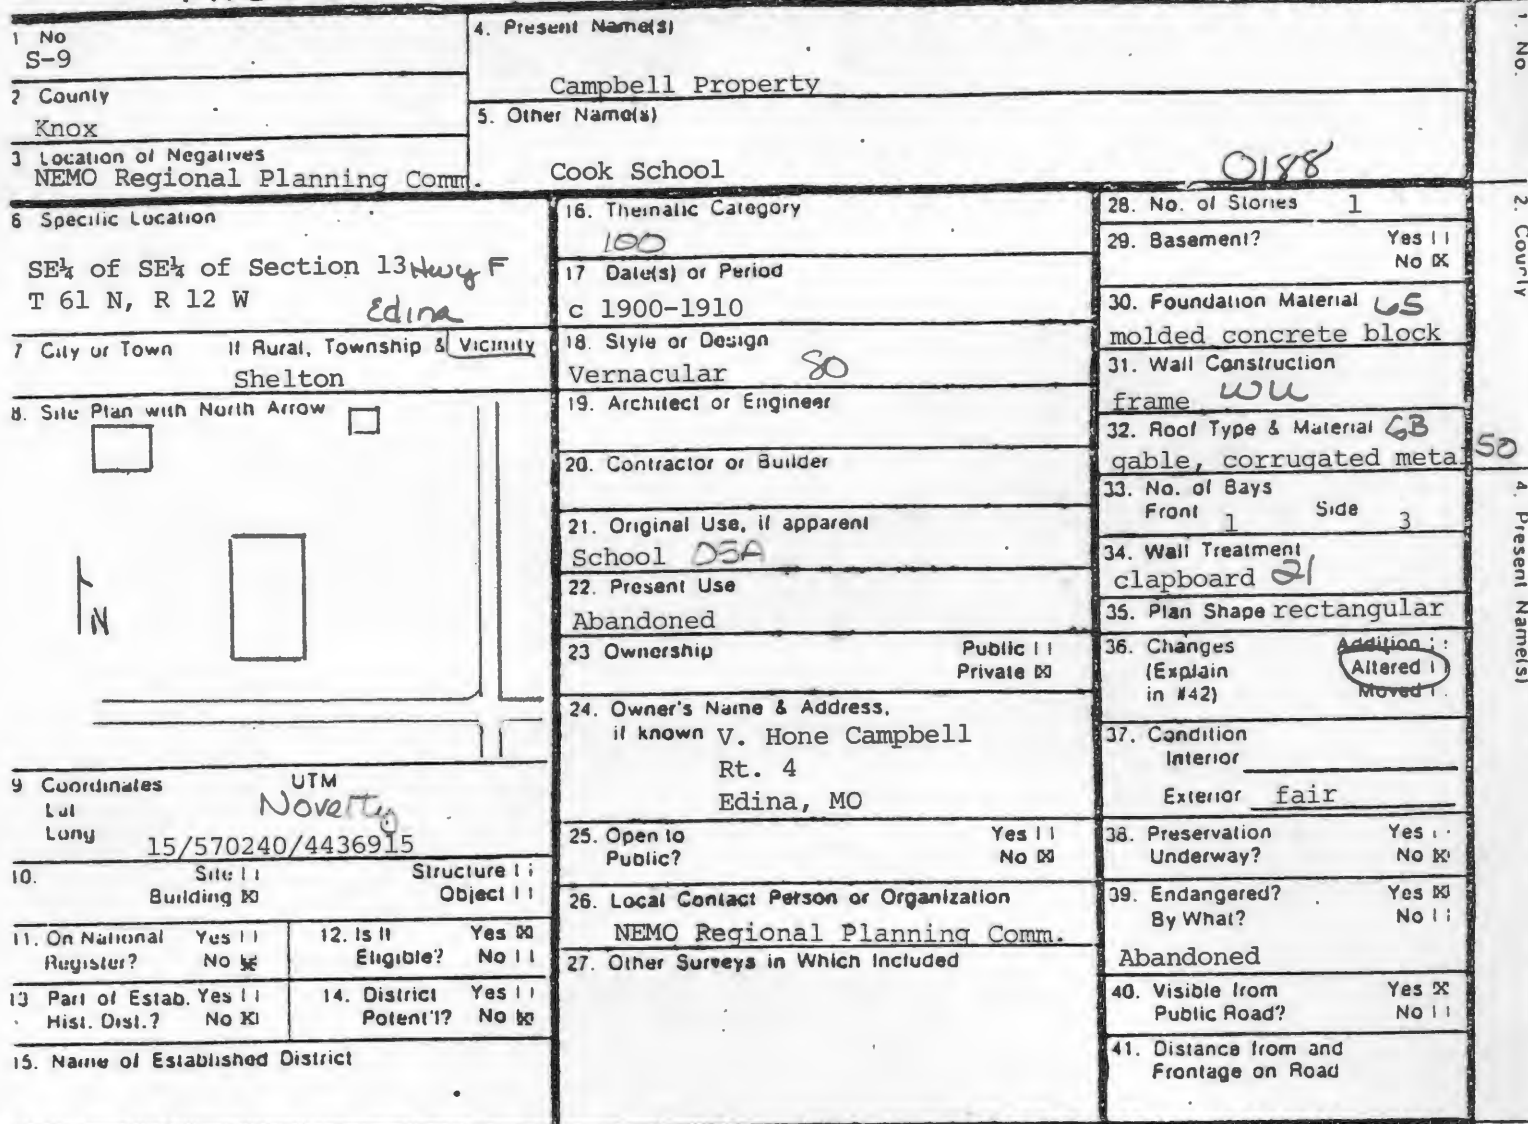 1 No
S-9
2 County
Knox
3 Location of Negatives
NEMO Regional Planning Comm.
4. Present Name(s)
Campbell Property
5. Other Name(s)
Cook School
0188
6 Specific Location
SE¼ of SE¼ of Section 13 Hwy F
T 61 N, R 12 W
Edina
7 City or Town If Rural, Township & Vicinity
Shelton
8. Site Plan with North Arrow
N
9 Coordinates UTM
Lat
Long
Novelty
15/570240/4436915
10. Site [ ] Structure [ ]
Building [X] Object [ ]
11. On National Register? Yes [ ] No [X]
12. Is It Eligible? Yes [X] No [ ]
13 Part of Estab. Hist. Dist.? Yes [ ] No [X]
14. District Potent'l? Yes [ ] No [X]
15. Name of Established District
16. Thematic Category
100
17 Date(s) or Period
c 1900-1910
18. Style or Design
Vernacular 80
19. Architect or Engineer
20. Contractor or Builder
21. Original Use, if apparent
School 05A
22. Present Use
Abandoned
23 Ownership Public [ ]
Private [X]
24. Owner's Name & Address,
if known V. Hone Campbell
Rt. 4
Edina, MO
25. Open to Public? Yes [ ] No [X]
26. Local Contact Person or Organization
NEMO Regional Planning Comm.
27. Other Surveys in Which Included
28. No. of Stories 1
29. Basement? Yes [ ]
No [X]
30. Foundation Material 65
molded concrete block
31. Wall Construction
frame WU
32. Roof Type & Material GB
gable, corrugated meta
50
33. No. of Bays
Front 1 Side 3
34. Wall Treatment
clapboard 21
35. Plan Shape rectangular
36. Changes (Explain in #42) Addition [ ]
Altered [ ]
Moved [ ]
37. Condition
Interior
Exterior fair
38. Preservation Underway? Yes [ ] No [X]
39. Endangered? Yes [X]
By What? No [ ]
Abandoned
40. Visible from Public Road? Yes [X] No [ ]
41. Distance from and
Frontage on Road
1. No.
2. County
4. Present Name(s)